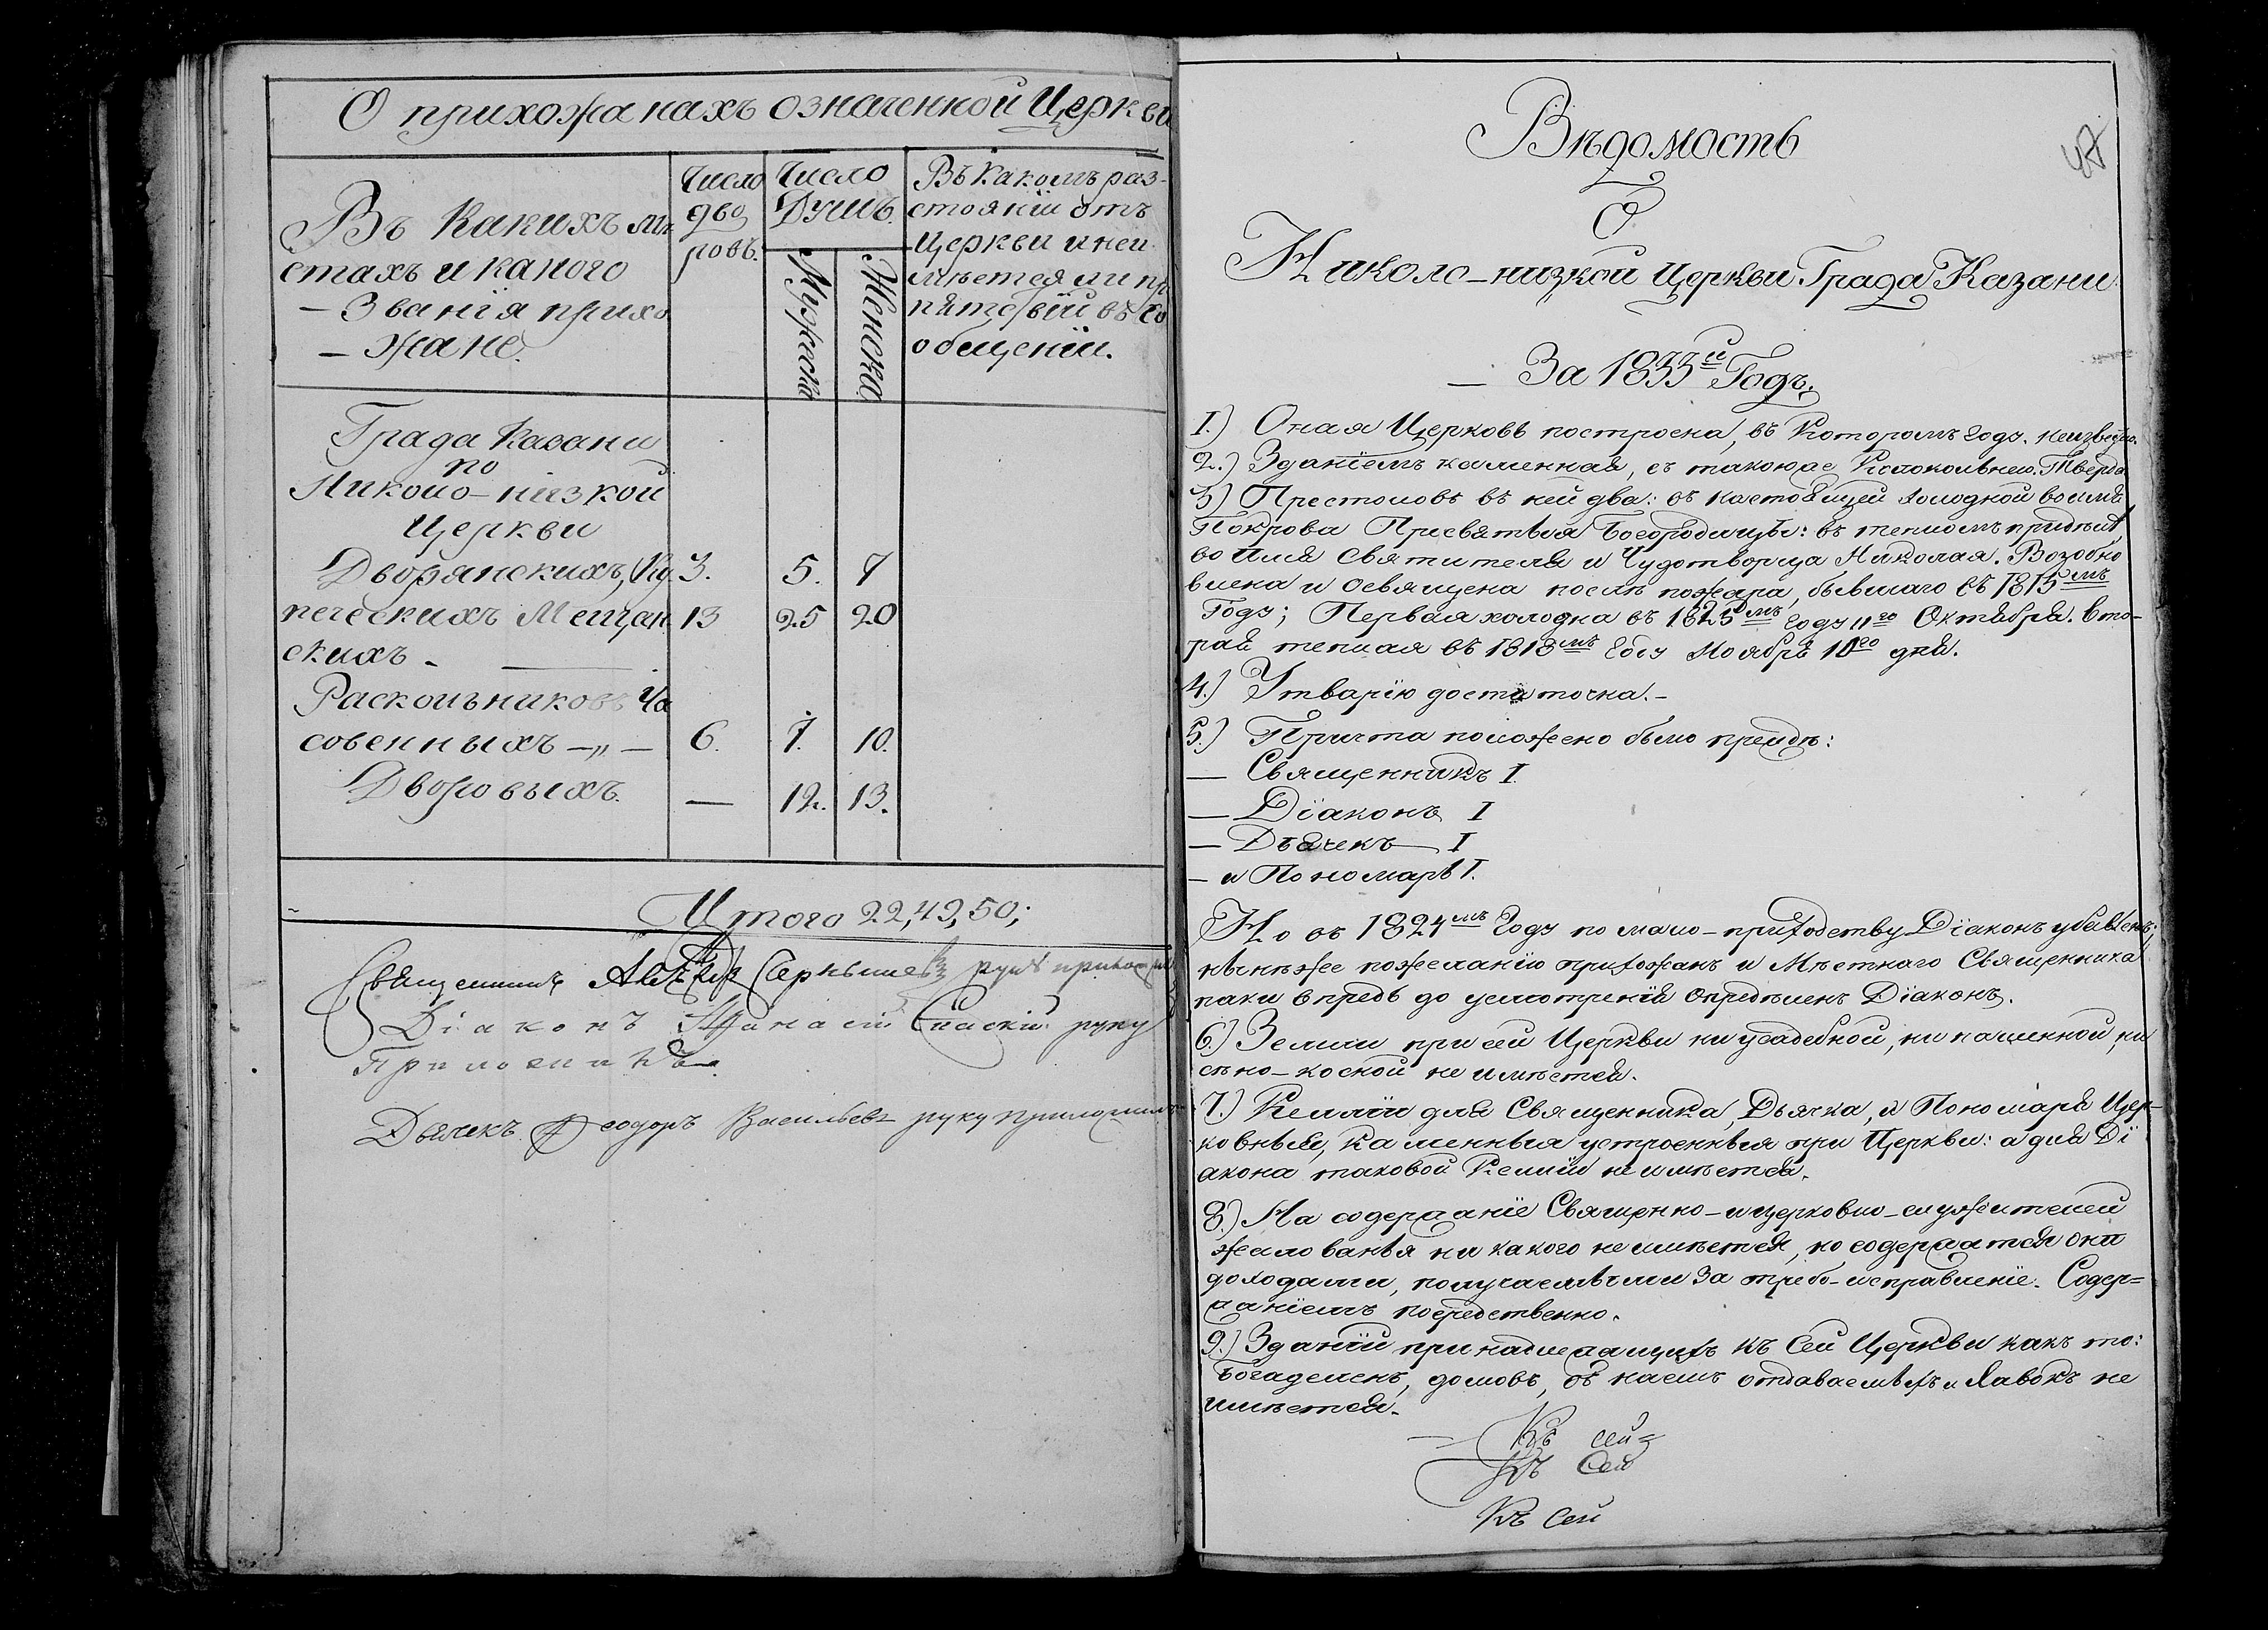 О прихожанахъ означенной Церкви
Въ какихъ мѣ
стахъ и какого
— Званїя прихо
— жане.
Число
дво
ровъ.
Число
Душъ.
Мужеска
Женска
Въ Какомъ раз-
стоянїи отъ
Церкви и не и
мѣется ли пре
пятствїй въ со
общенїи.
Града Казани
по
Николо-низкой
Церкви
Дворянскихъ, Ку 3. 5. 7
печескихъ Мещан 13 25 20
скихъ. —
Раскольниковъ Ча
совенныхъ —„— 6. 7. 10.
Дворовыхъ. — 12. 13.
Итого 22, 49, 50;
Священникъ руку приложил
Дїаконъ Афанасїй Спаскїй руку
Приложилъ
Дьячекъ Феодоръ Васильевъ руку приложилъ
47
Вѣдомость
О
Николо-низкой Церкви Града Казани
— За 1833й Годъ.
1.) Оная Церковь построена, въ Которомъ году. неизвѣстно.
2.) Зданїемъ каменная, съ такоюже Колокольнею. Тверда
3) Престоловъ въ ней два: въ настоящей холодной во имя
Покрова Пресвятыя Богородицы: въ тепломъ придѣлѣ
во Имя Святителя и Чудотворца Николая. Возобно
влена и освящена послѣ пожара, бывшаго въ 1815мъ
Году; Первая холодна въ 1825мъ году 11го Октября. вто-
рая теплая въ 1818мъ Году Ноября 10го дня.
4.) Утварїю достаточна. —
5.) Причта положено было прежде:
— Священникъ I.
— Дїаконъ I
— Дьячекъ — I
— и Пономарь I.
Но въ 1824мъ Году по мало-приходству Дїаконъ убавленъ;
нынѣже по желанїю прихожанъ и Мѣстнаго Священника
паки впредь до усмотренїя Опредѣленъ Дїаконъ.
6.) Земли при сей Церкви ни усадебной, ни пашенной, ни
сѣно-косной не имѣется.
7.) Келлїи для Священника, Дьячка, и Пономаря Цер-
ковныя, каменныя устроенныя при Церкви: а для Дї
акона таковой Келлїи не имѣется.
8.) На содержанїе Священно-и церковно-служителей
жалованья ни какого не имѣется, но содержатся они
доходами, получаемыми за требо-исправленїе. Содер=
жанїемъ посредственно.
9.) Зданїй принадлежащихъ къ Сей Церкви какъ то:
Богаделенъ, домовъ, въ наемъ отдаваемыхъ и Лавокъ не
имѣется.
Къ сей
Къ Сей
Къ Сей